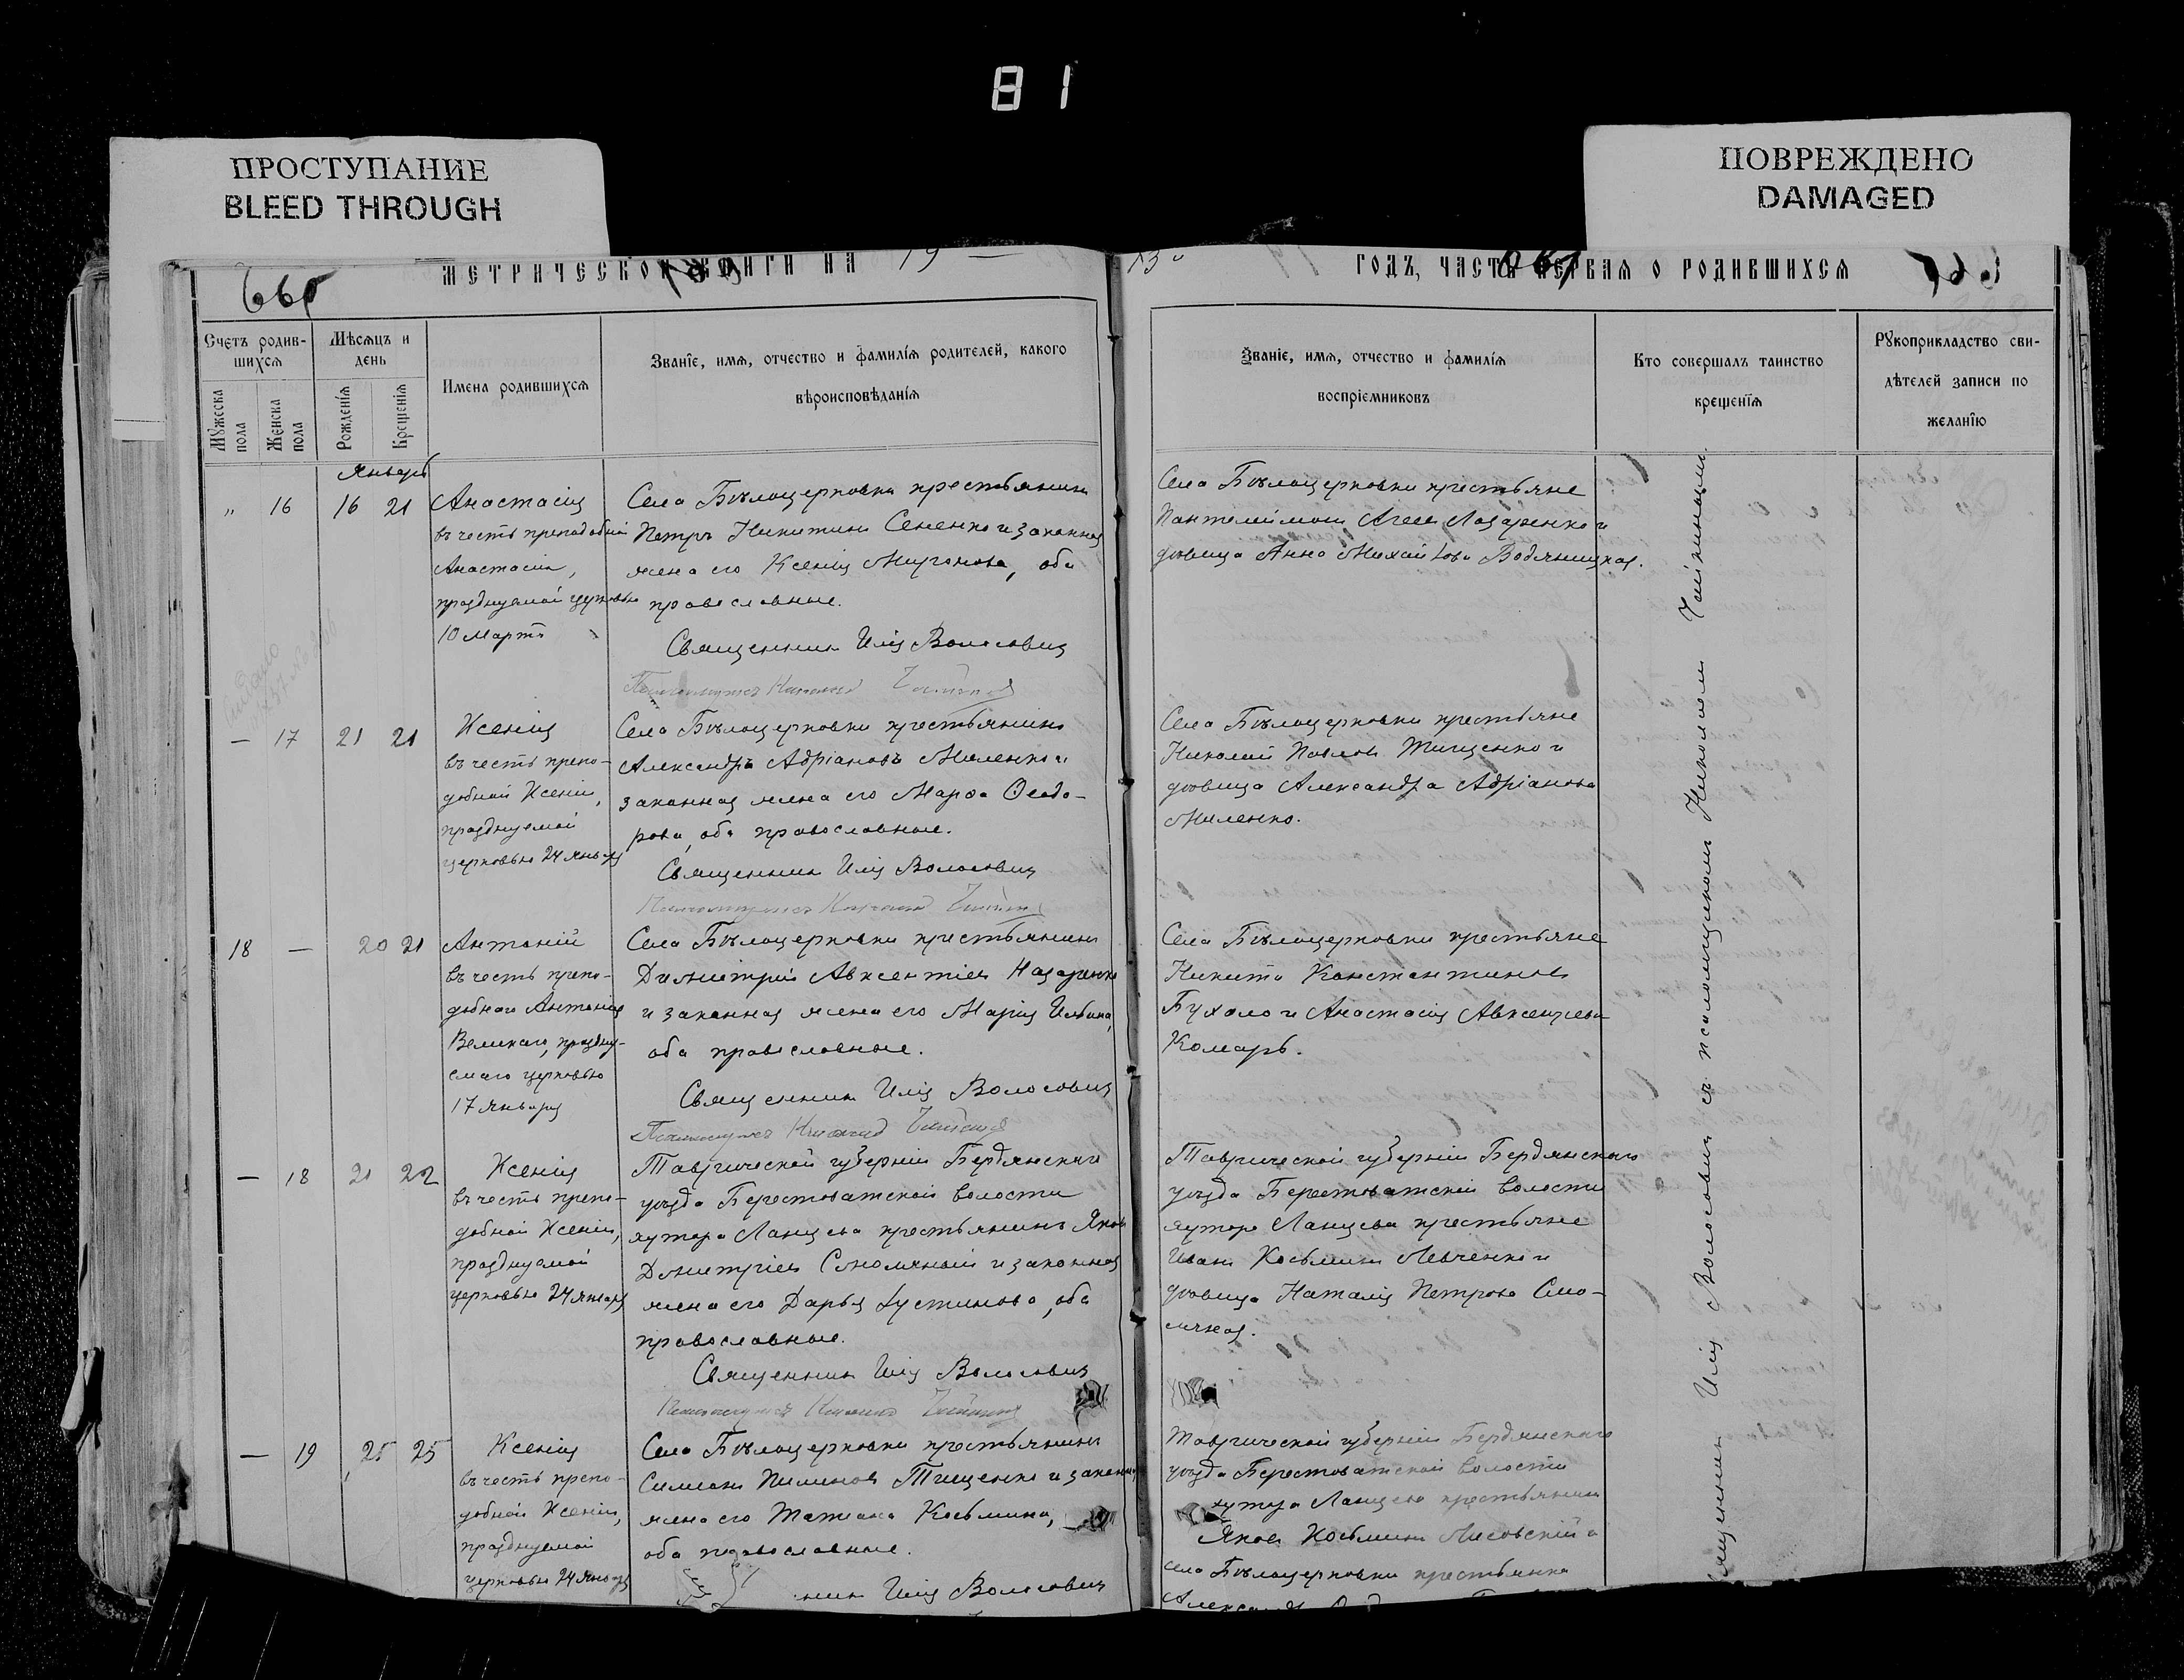 81
ПРОСТУПАНИЕ
BLEED THROUGH
ПОВРЕЖДЕНО
DAMAGED
МЕТРИЧЕСКОЙ КНИГИ НА 19
13 ГОДЪ, ЧАСТЬ ПЕРВАЯ О РОДИВШИХСЯ
Счетъ родив-
шихся
Мужеска
пола
Женска
пола
Мѣсяцъ и
день
Рожденія
Крещенія
Имена родившихся
Званіе, имя, отчество и фамилія родителей, какого
вѣроисповѣданія
Званіе, имя, отчество и фамилія
воспріемниковъ
Кто совершалъ таинство
крещенія
Рукоприкладство сви-
дѣтелей записи по
желанію
Январь
„ 16 16 21
Анастасія
въ честь преподобной
Анастасіи,
празднуемой церковью
10 Марта
Села Бѣлоцерковки крестьянинъ
Петръ Никитинъ Сененко и законная
жена его Ксенія Миронова, оба
православные.
Священникъ Илія Волосовичъ
Села Бѣлоцерковки крестьяне
Пантелеймонъ Лазаренко и
дѣвица Анна Михайлова Водяницкая.
— 17 21 21
Ксенія
въ честь препо-
добной Ксеніи,
празднуемой
церковью 24 Января
Села Бѣлоцерковки крестьянинъ
Александръ Адріановъ Миленко и
законная жена его Марѳа Ѳеодо-
рова, оба православные.
Священникъ Илія Волосовичъ
Села Бѣлоцерковки крестьяне
Николай Павловъ Тищенко и
дѣвица Александра Адріанова
Миленко.
18 — 20 21
Антоній
въ честь препо-
добнаго Антонія
Великаго, праздну-
емаго церковью
17 Января
Села Бѣлоцерковки крестьянинъ
Димитрій Авксентіевъ Назаренко
и законная жена его Марія Ильина,
оба православные.
Священникъ Илія Волосовичъ
Села Бѣлоцерковки крестьяне
Никита Константиновъ
Бухало и Анастасія Авксентіева
Комаръ.
— 18 21 22
Ксенія
въ честь препо-
добной Ксеніи,
празднуемой
церковью 24 Января
Таврической губерніи Бердянскаго
уѣзда Берестоватской волости
хутора Ланцева крестьянинъ Яковъ
Димитріевъ и законная
жена его Дарья Іустинова, оба
православные.
Священникъ Илія Волосовичъ
Таврической губерніи Бердянскаго
уѣзда Берестоватской волости
хутора Ланцева крестьяне
Иванъ Косьминъ Левченко и
дѣвица Наталія Петрова
— 19 25 25
Ксенія
въ честь препо-
добной Ксеніи,
празднуемой
церковью 24 Января
Села Бѣлоцерковки крестьянинъ
Симеонъ Пименовъ Тищенко и законная
жена его Татіана Косьмина,
оба православные.
никъ Илія Волосовичъ
Таврической губерніи Бердянскаго
уѣзда Берестоватской волости
хутора Ланцева крестьянинъ
Яковъ Косьминъ Лисовскій и
села Бѣлоцерковки крестьянка
Священникъ Илія Волосовичъ съ псаломщикомъ Николаемъ